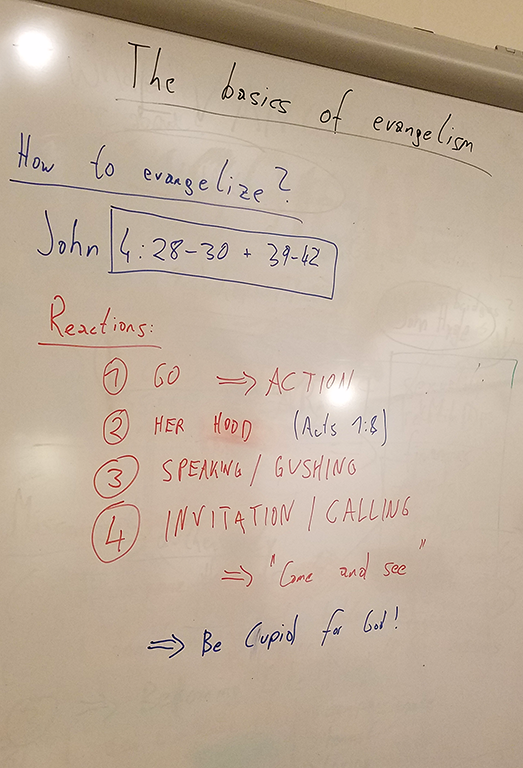 The basics of evangelism
How to evangelize?
John 4:28-30 + 39-42
Reactions:
1 GO ⇒ ACTION
2 HER HOOD (Acts 1:8)
3 SPEAKING / GUSHING
4 INVITATION / CALLING
⇒ "Come and see"
⇒ Be Cupid for God!